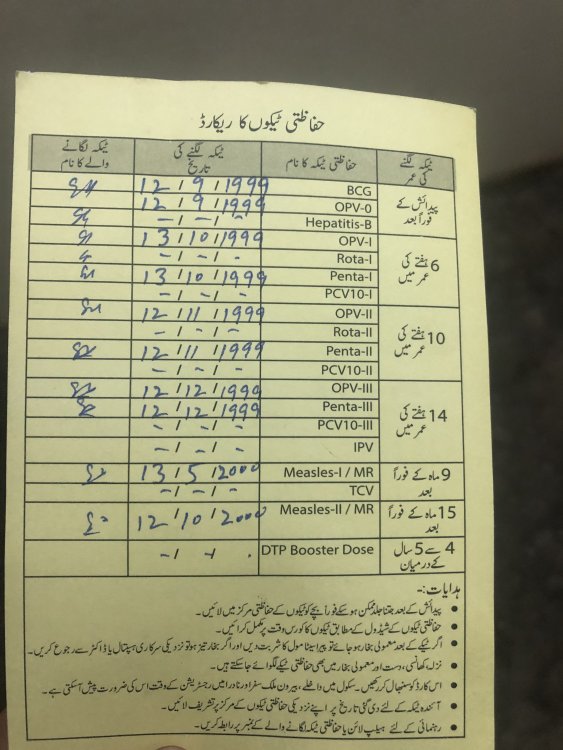 حفاظتی ٹیکوں کا ریکارڈ
ٹیکہ لگنے کی عمر | حفاظتی ٹیکہ کا نام | ٹیکہ لگنے کی تاریخ | ٹیکہ لگانے والے کا نام
پیدائش کے فوراً بعد
BCG 12/9/1999
OPV-0 12/9/1999
Hepatitis-B -/-/-
6 ہفتے کی عمر میں
OPV-I 13/10/1999
Rota-I -/-/-
Penta-I 13/10/1999
PCV10-I -/-/-
10 ہفتے کی عمر میں
OPV-II 12/11/1999
Rota-II -/-/-
Penta-II 12/11/1999
PCV10-II -/-/-
14 ہفتے کی عمر میں
OPV-III 12/12/1999
Penta-III 12/12/1999
PCV10-III -/-/-
IPV -/-/-
9 ماہ کے فوراً بعد
Measles-I / MR 13/5/2000
TCV -/-/-
15 ماہ کے فوراً بعد
Measles-II / MR 12/10/2000
4 سے 5 سال کے درمیان
DTP Booster Dose -/-/.
ہدایات:-
• پیدائش کے بعد جتنا جلد ممکن ہو سکے فوراً بچے کو ٹیکوں کے حفاظتی مرکز میں لائیں۔
• حفاظتی ٹیکوں کے شیڈول کے مطابق ٹیکوں کا کورس وقت پر مکمل کرائیں۔
• اگر ٹیکے کے بعد معمولی بخار ہو جائے تو پیراسیٹامول کا شربت دیں اور اگر بخار تیز ہو تو نزدیکی سرکاری ہسپتال یا ڈاکٹر سے رجوع کریں۔
• نزلہ، کھانسی، دست اور معمولی بخار میں بھی حفاظتی ٹیکے لگوائے جا سکتے ہیں۔
• اس کارڈ کو سنبھال کر رکھیں۔ سکول میں داخلے، بیرون ملک سفر اور نادرا میں رجسٹریشن کے وقت اس کی ضرورت پیش آ سکتی ہے۔
• آئندہ ٹیکہ کے لئے دی گئی تاریخ پر اپنے نزدیکی حفاظتی ٹیکوں کے مرکز پر تشریف لائیں۔
• رہنمائی کے لئے ہیلپ لائن یا حفاظتی ٹیکہ لگانے والے کے نمبر پر رابطہ کریں۔